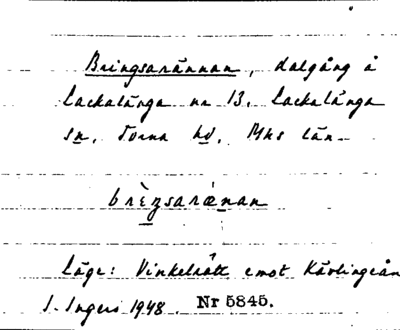 Bringsarännan, dalgång å
Lackalänga nr 13. Lackalänga
sn, Torna hd, Mhs län
brèŋsarænan
Läge: Vinkelrätt emot Kävlingeån
I. Ingers 1948. Nr 5845.